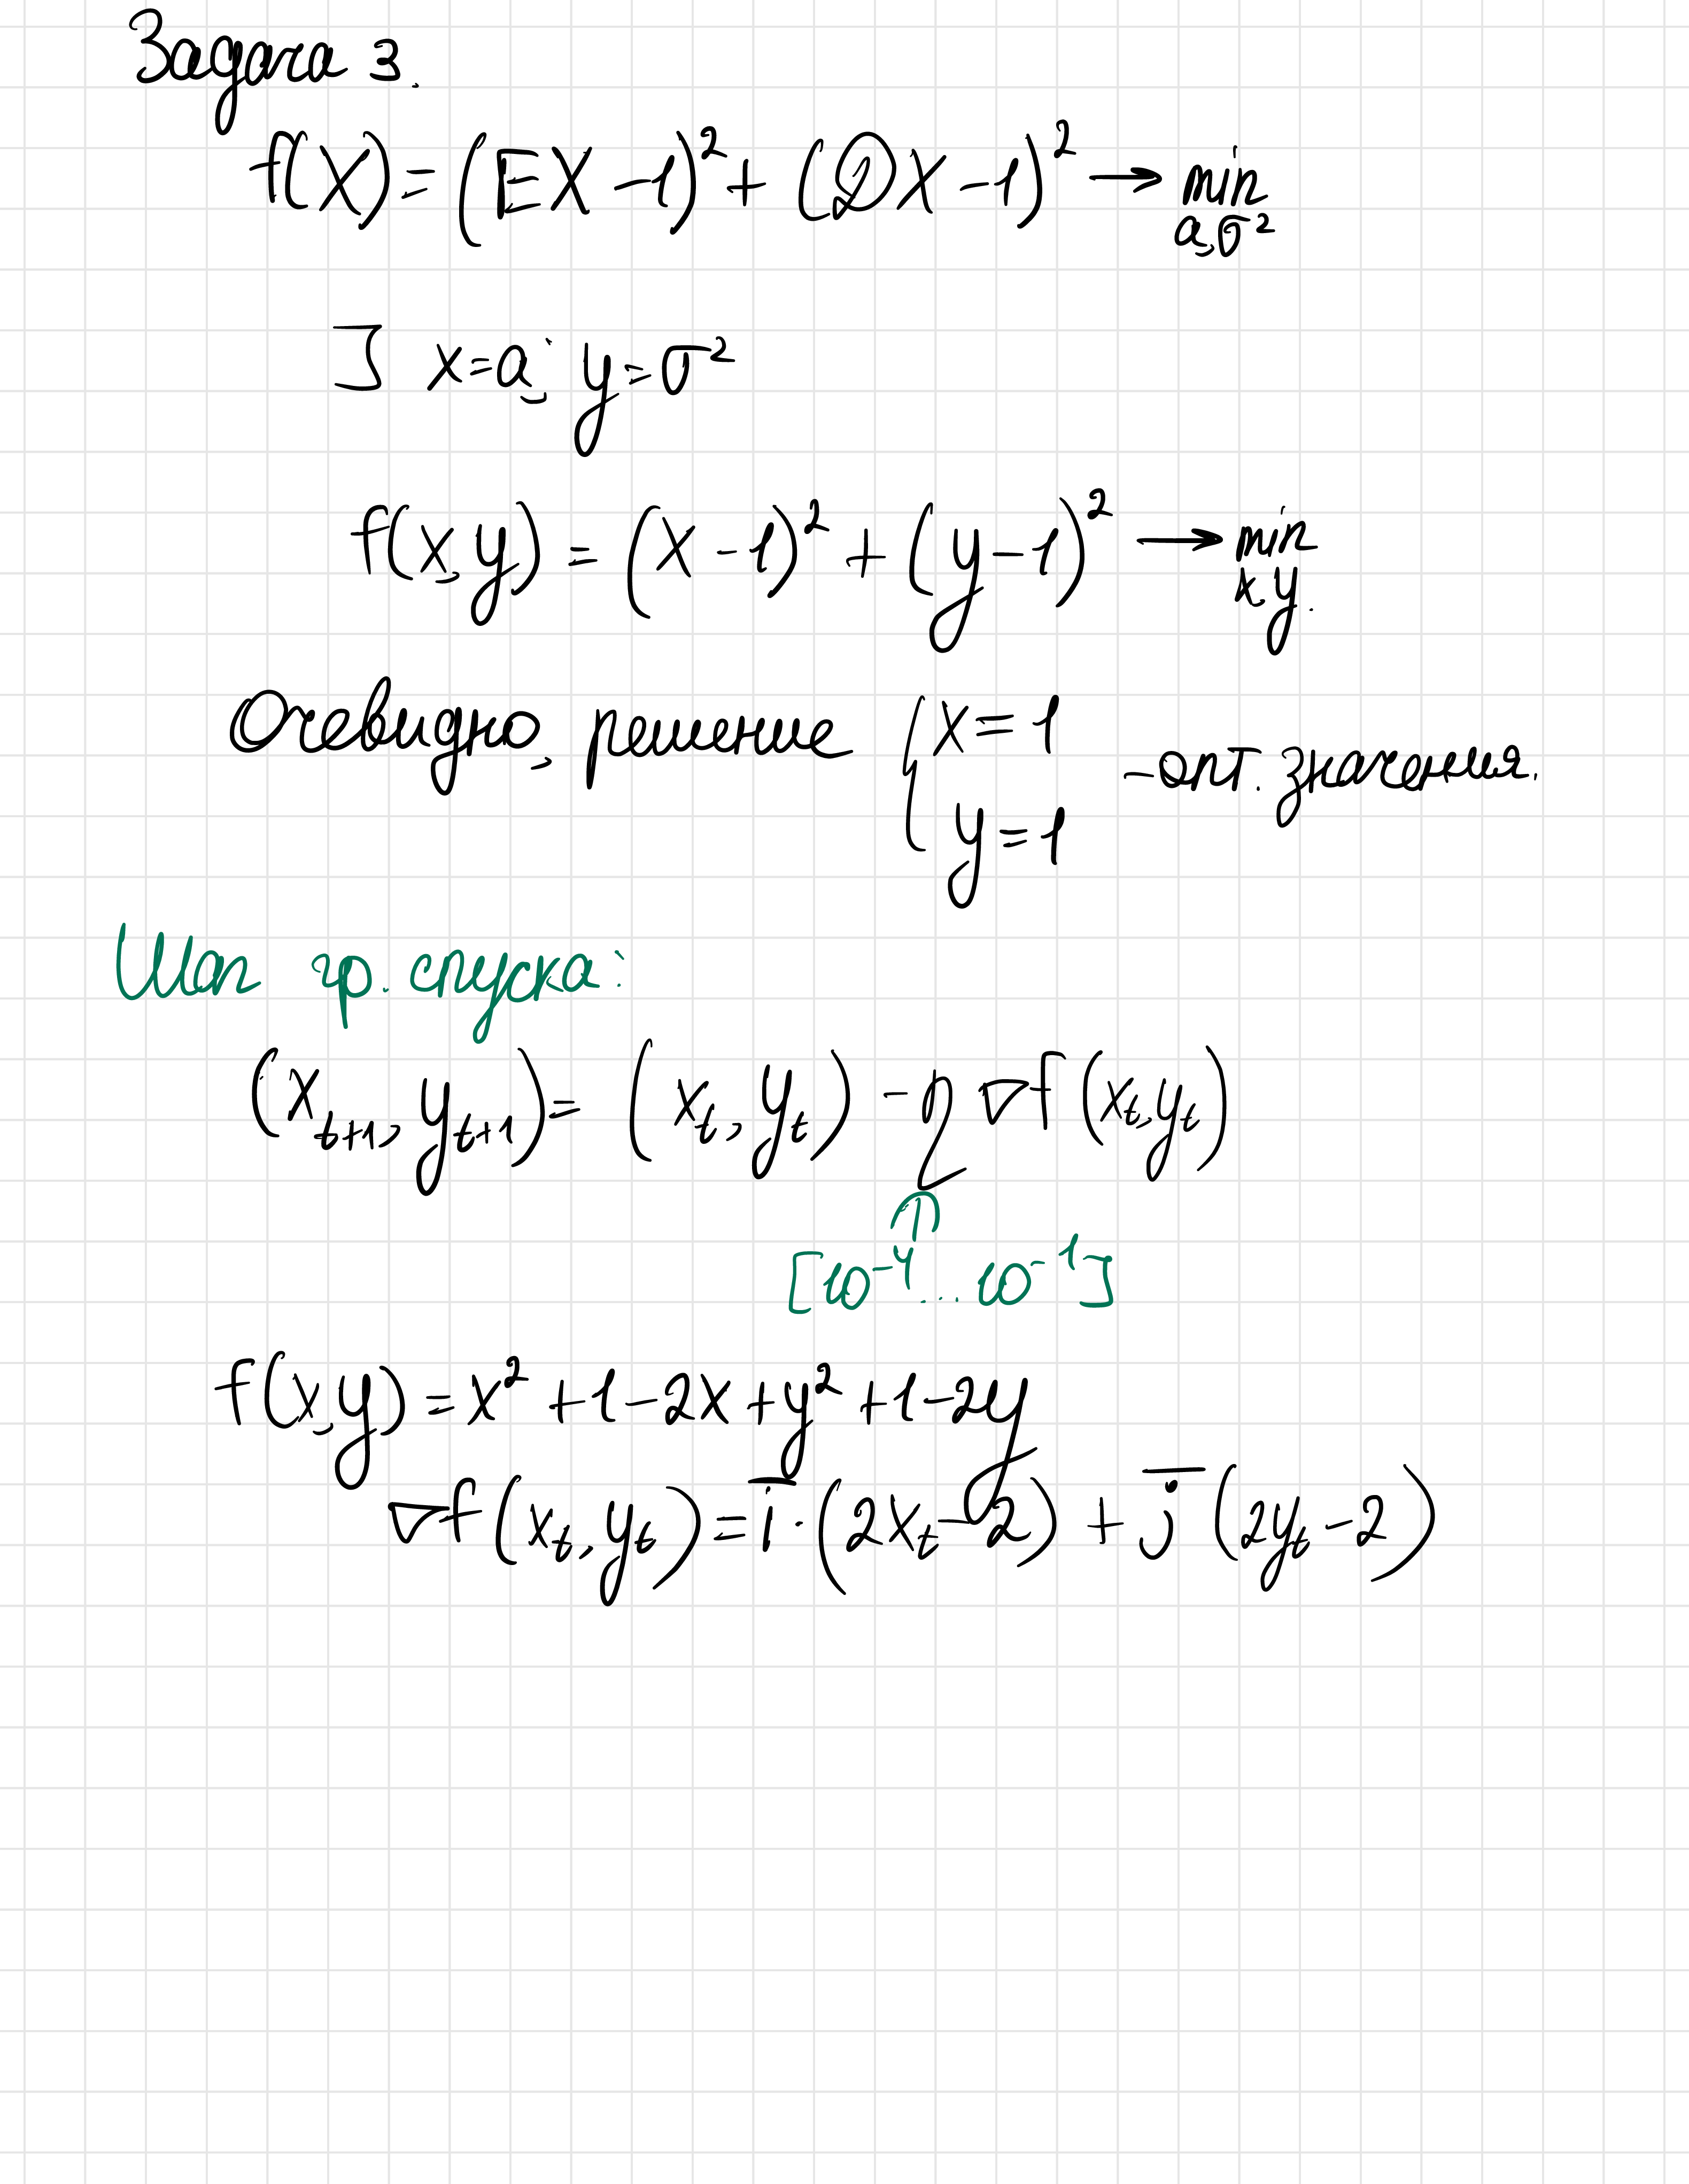 Задача 3.
f(X) = (EX − 1)² + (DX − 1)² → min
a, σ²
] x = a; y = σ²
f(x, y) = (x − 1)² + (y − 1)² → min
x, y.
Очевидно, решение { x = 1
y = 1 − опт. значения.
Шаг гр. спуска:
(x_{t+1}, y_{t+1}) = (x_t, y_t) − η ∇f(x_t, y_t)
↑
[10⁻⁴ ... 10⁻¹]
f(x, y) = x² + 1 − 2x + y² + 1 − 2y
∇f(x_t, y_t) = i̅ · (2x_t − 2) + j̅ (2y_t − 2)